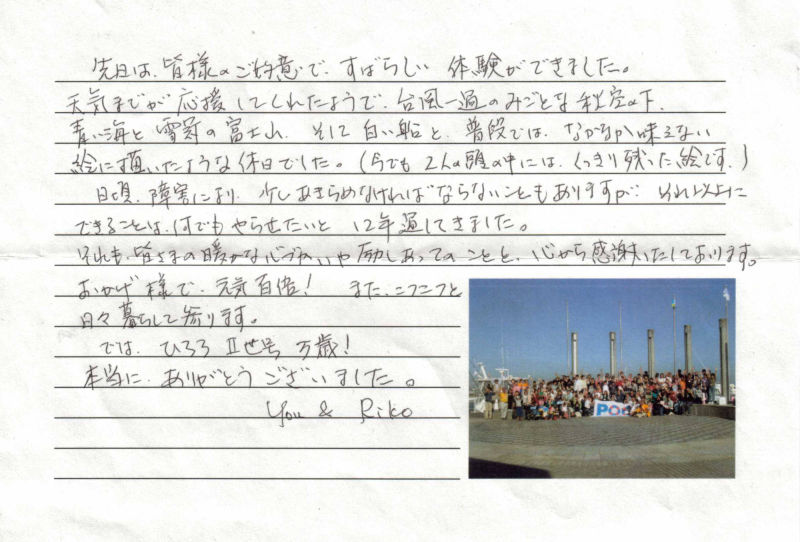 先日は、皆様のご好意で、すばらしい 体験ができました。
天気までが応援してくれたようで、台風一過のみごとな秋空の下、
青い海と 雪冠の富士山、そして 白い船と、普段では、なかなか味えない
絵に頂いたような休日でした。(今でも 2人の頭の中には、くっきり残った絵です。)
日頃、障害により、少しあきらめなければならないこともありますが… それ以上に
できることは、何でも やらせたいと 12年過してきました。
それも、皆さまの暖かな心づかいや 励しあってのことと、心から感謝いたしております。
おかげ様で、元気百倍! また、ニコニコと
日々暮らして参ります。
では、ひろろ Ⅱ世号 万歳!
本当に、ありがとうございました。
You & Riko